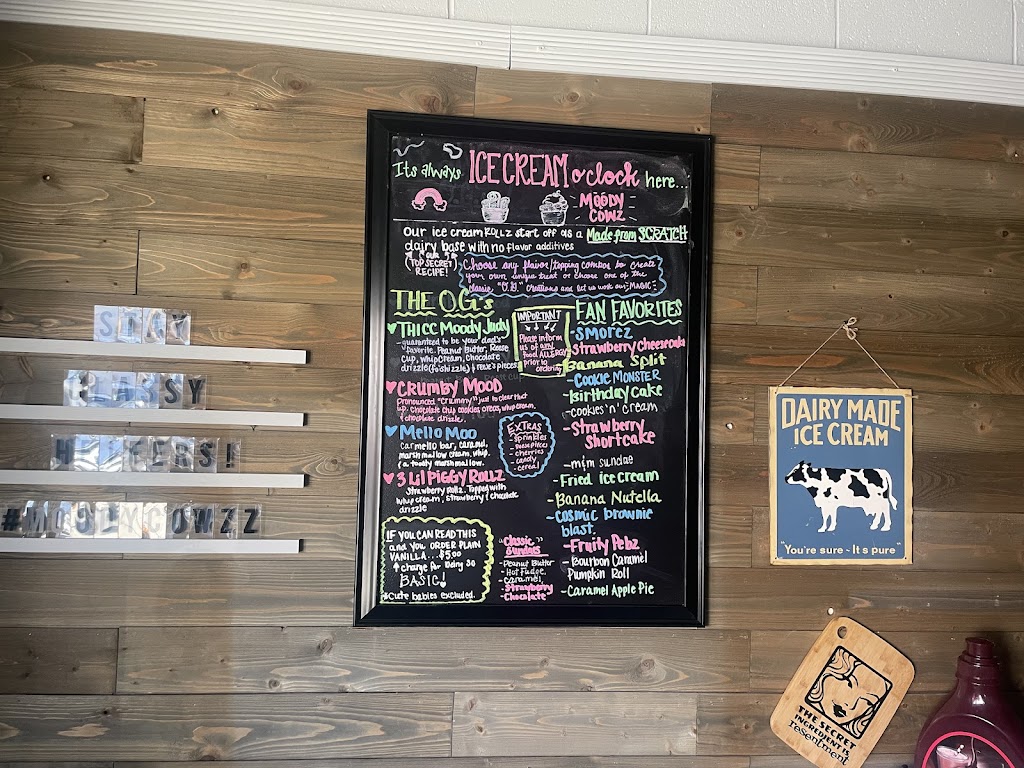 Its always ICE CREAM o'clock here...
MOODY
COWZ
Our ice cream ROLLZ start off as a Made from SCRATCH
dairy base with no flavor additives
(our
TOP SECRET
RECIPE!)
Choose any flavor/topping combos to create
your own unique treat or choose one of the
classic "O.G." creations and let us work our MAGIC
THE O.G.'s
THICC Moody Judy
-guaranteed to be your dad's
favorite. Peanut Butter, Reese
cup, whip cream, chocolate
drizzle (fo shizzle) & reese's pieces
CRUMBY MOOD
Pronounced "crummy" just to clear that
up. Chocolate chip cookies, oreos, whip cream,
& chocolate drizzle.
Mello Moo
Carmello bar, caramel,
marshmallow cream, whip,
(a toasty marshmallow.
3 Lil PiGGY ROLLZ
Strawberry Rollz. Topped with
whip cream, strawberry & chocolate
drizzle
IF YOU CAN READ THIS
and YOU ORDER PLAIN
VANILLA...$5.00
↑ charge for being so
BASIC!
*Cute babies excluded.
IMPORTANT
Please inform
us of any
food ALLERGY
prior to
ordering
EXTRAS
-sprinkles
-reese pieces
-cherries
-candy
-cereal
"Classic"
Sundaes
-Peanut Butter
-Hot Fudge
-caramel
-Strawberry
-Chocolate
FAN FAVORITES
-SMOREZ
Strawberry Cheesecake
Banana Split
-COOKIE MONSTER
-Birthday Cake
-cookies 'n' cream
-Strawberry
Shortcake
-m&m sundae
-Fried ice cream
-Banana Nutella
-Cosmic brownie
blast.
-Fruity Pebz
-Bourbon Caramel
Pumpkin Roll
-Caramel Apple Pie
STAY
CLASSY
HEIFERS!
#MOODYCOWZZ
DAIRY MADE
ICE CREAM
"You're sure - It s pure"
THE SECRET
INGREDIENT IS
resentment